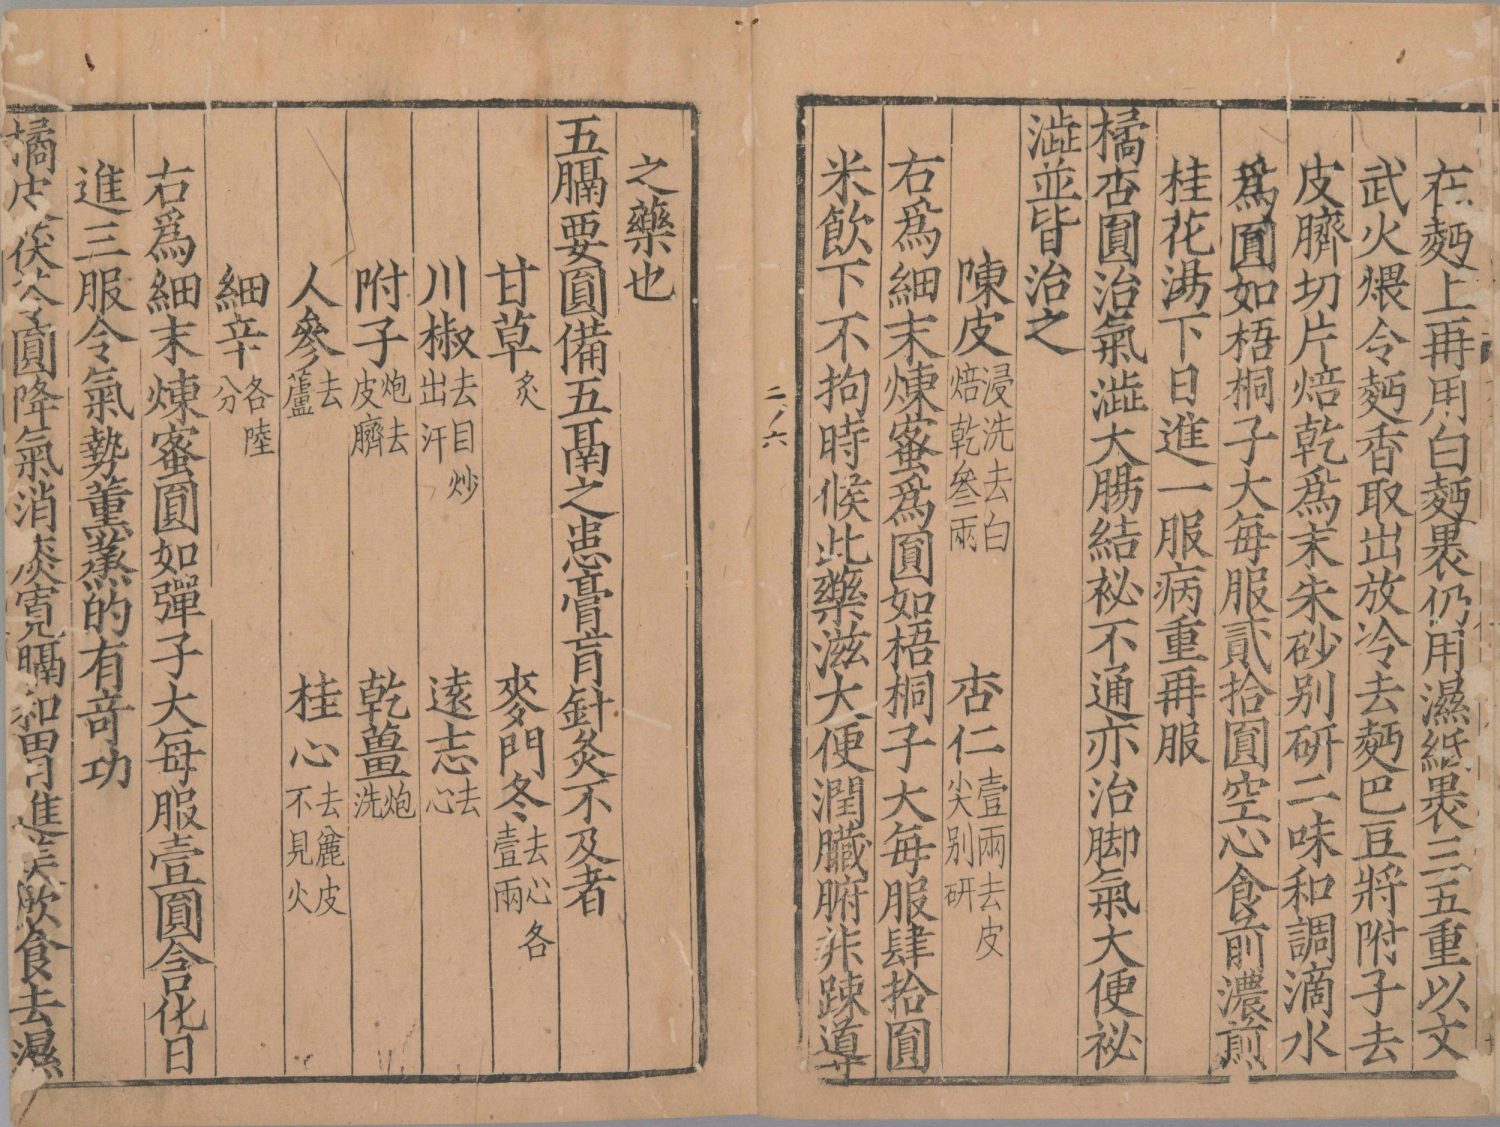 在麪上再用白麪裹仍用濕紙裹三五重以文
武火煨令麪香取出放冷去麪巴豆將附子去
皮臍切片焙乾爲末朱砂别研二味和調滴水
爲圓如梧桐子大每服貳拾圓空心食前濃煎
桂花湯下日進一服病重再服
橘杏圓治氣澁大腸結祕不通亦治脚氣大便祕
澁並皆治之
陳皮浸洗去白焙乾叄兩 杏仁壹兩去皮尖别研
右爲細末煉蜜爲圓如梧桐子大每服肆拾圓
米飲下不拘時候此藥滋大便潤臟腑非踈導
二ノ六
之藥也
五膈要圓備五鬲之患膏肓針灸不及者
甘草炙 麥門冬去心各壹兩
川椒去目炒出汗 遠志去心
附子炮去皮臍 乾薑炮洗
人參去蘆 桂心去麄皮不見火
細辛各陸分
右爲細末煉蜜圓如彈子大每服壹圓含化日
進三服令氣勢薰蒸的有奇功
橘皮茯苓圓降氣消痰寛膈和胃進美飲食去濕